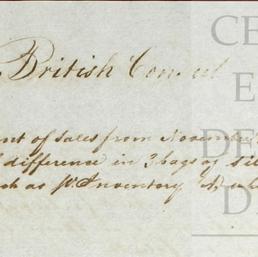 British Consul
nt of sales from November
difference in 3 bags of
as pr. Inventory A
CE
E
DE
D